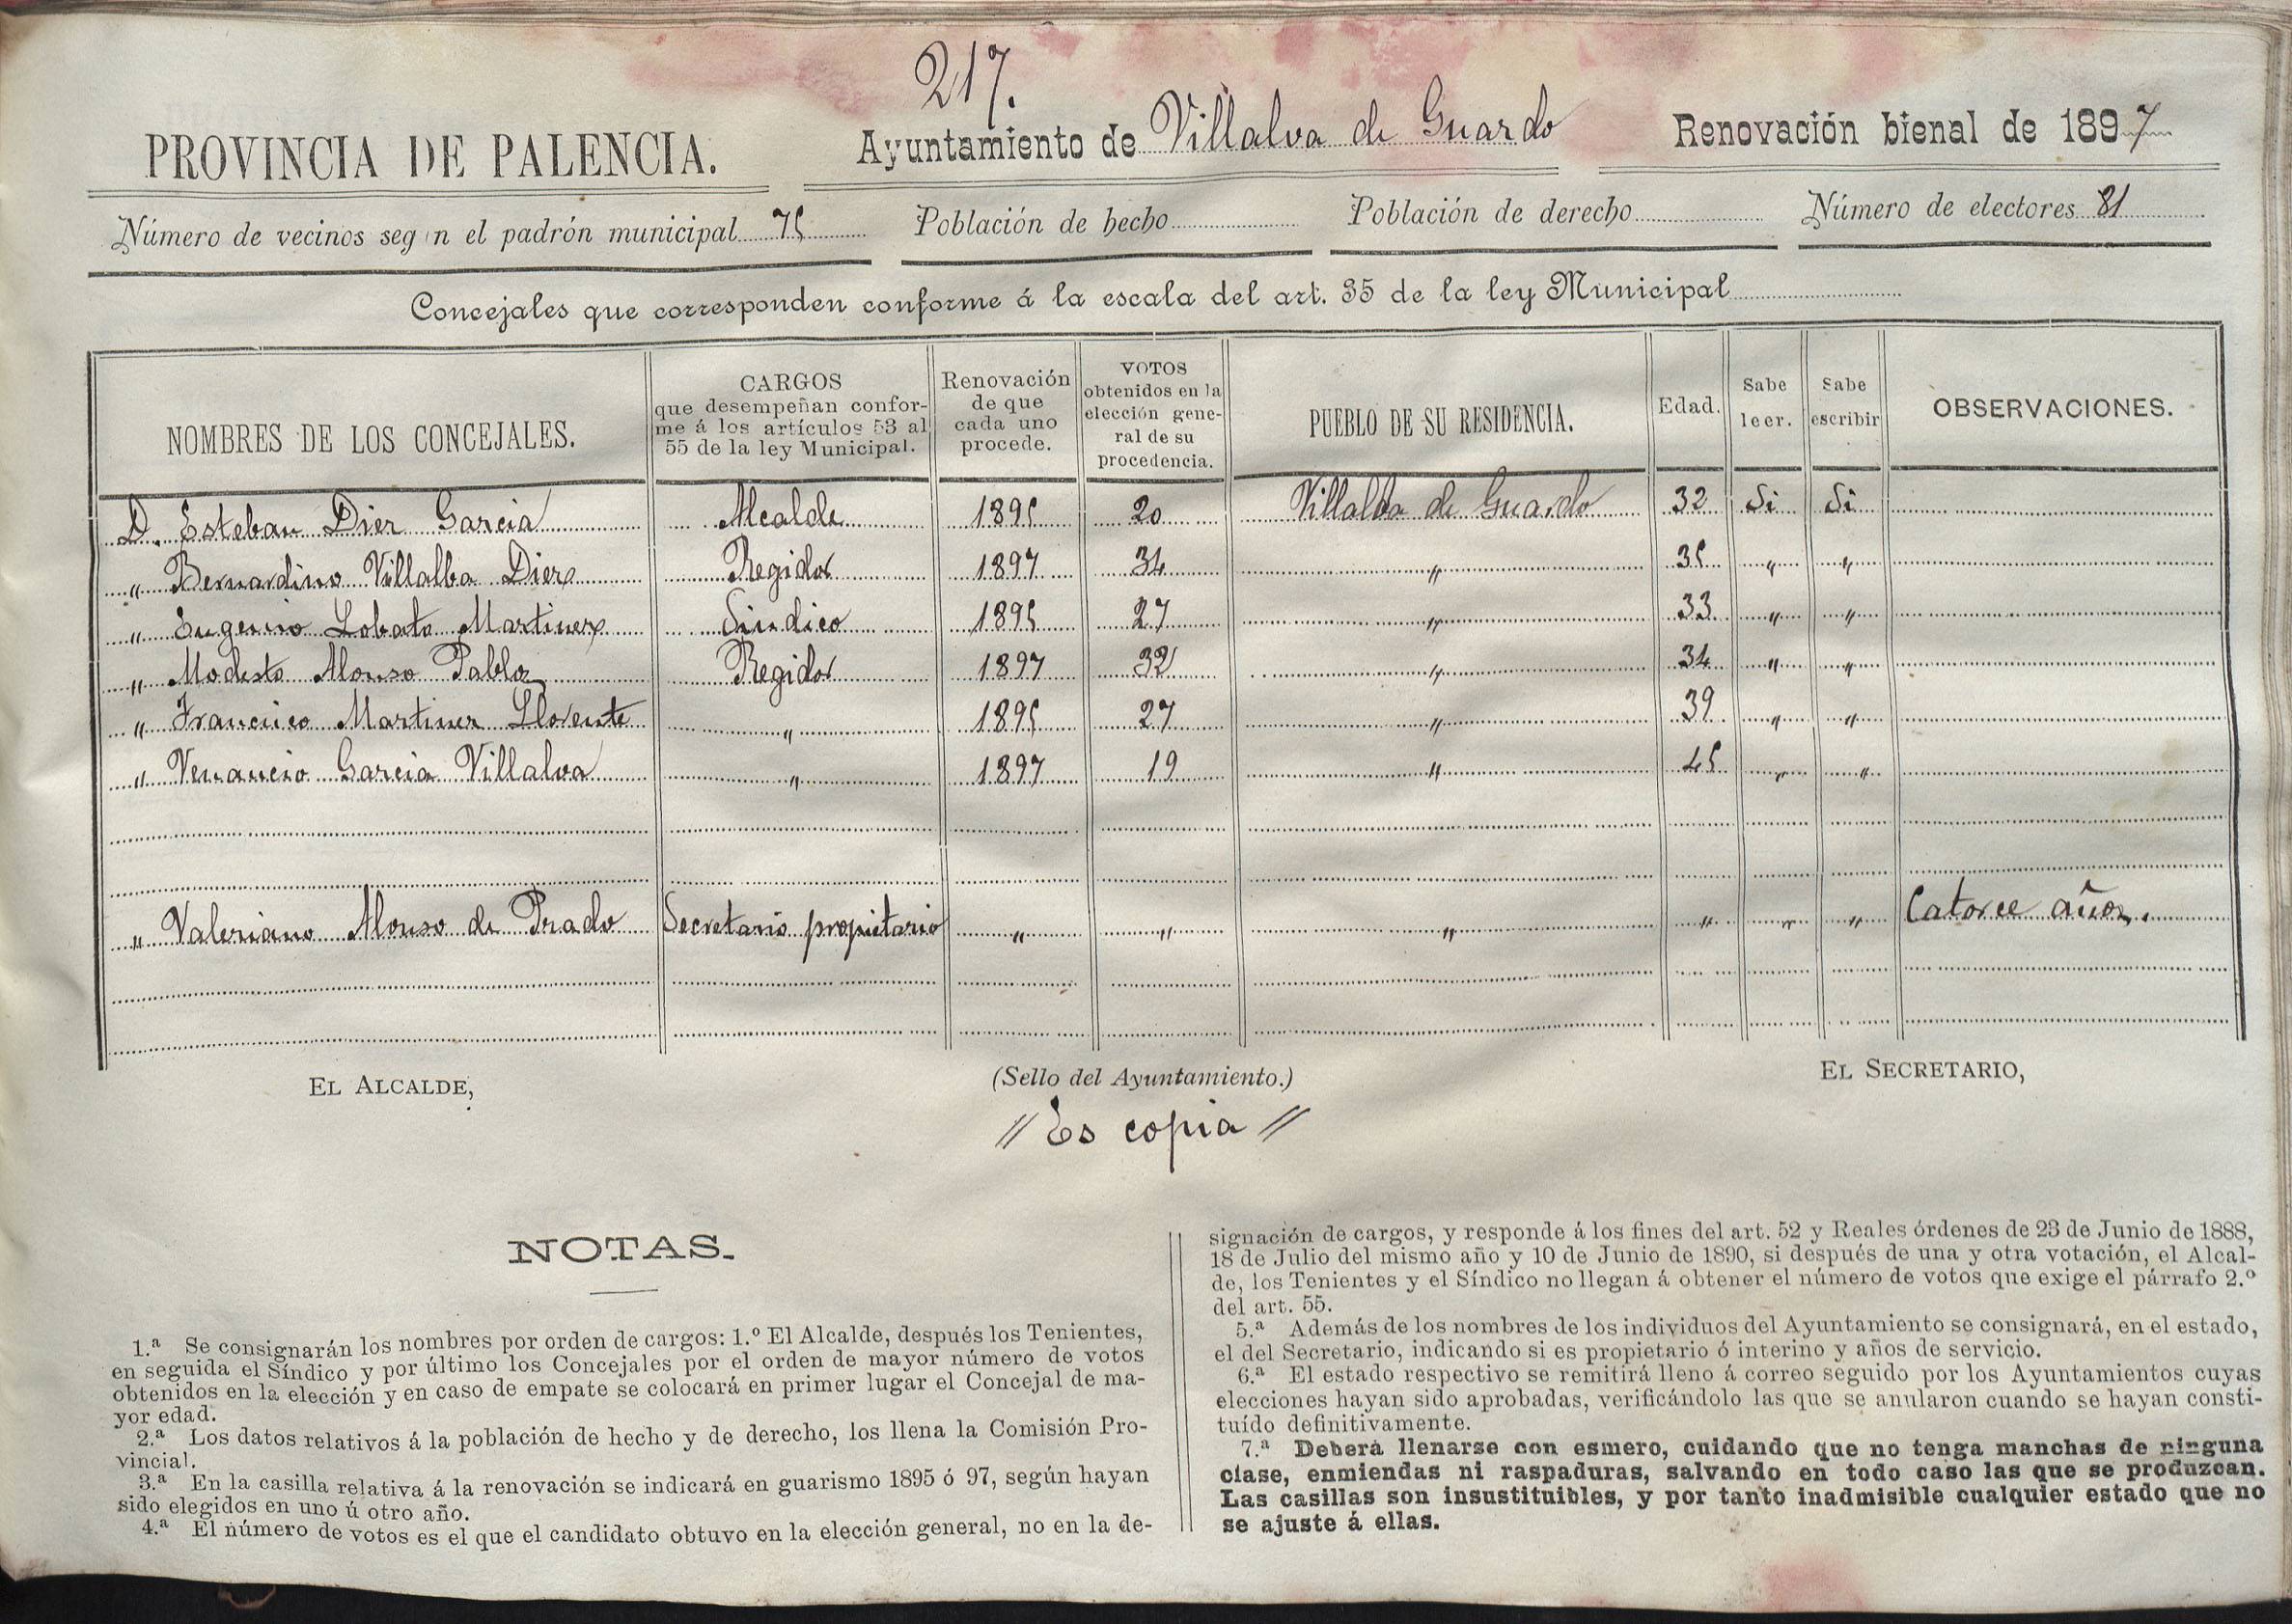 217.
PROVINCIA DE PALENCIA. Ayuntamiento de Villalva de Guardo Renovación bienal de 1897
Número de vecinos seg n el padrón municipal 75 Población de hecho Población de derecho Número de electores 81
Concejales que corresponden conforme á la escala del art. 35 de la ley Municipal
NOMBRES DE LOS CONCEJALES.
CARGOS
que desempeñan confor-
me á los artículos 53 al
55 de la ley Municipal.
Renovación
de que
cada uno
procede.
VOTOS
obtenidos en la
elección gene-
ral de su
procedencia.
PUEBLO DE SU RESIDENCIA.
Edad.
Sabe
leer.
Sabe
escribir
OBSERVACIONES.
D. Esteban Diez Garcia Alcalde 1895 20 Villalba de Guardo 32 Si Si
" Bernardino Villalba Diez Regidor 1897 34 " 35 " "
" Eugenio Lobato Martinez Sindico 1895 27 " 33 " "
" Modesto Alonso Pablos Regidor 1897 32 " 34 " "
" Francisco Martinez Llorente " 1895 27 " 39 " "
" Venancio Garcia Villalva " 1897 19 " 45 " "
" Valeriano Alonso de Prado Secretario propietario " " " " " " Catorce años.
EL ALCALDE, (Sello del Ayuntamiento.) EL SECRETARIO,
// Es copia //
NOTAS.
1.ª Se consignarán los nombres por orden de cargos: 1.º El Alcalde, después los Tenientes,
en seguida el Síndico y por último los Concejales por el orden de mayor número de votos
obtenidos en la elección y en caso de empate se colocará en primer lugar el Concejal de ma-
yor edad.
2.ª Los datos relativos á la población de hecho y de derecho, los llena la Comisión Pro-
vincial.
3.ª En la casilla relativa á la renovación se indicará en guarismo 1895 ó 97, según hayan
sido elegidos en uno ú otro año.
4.ª El número de votos es el que el candidato obtuvo en la elección general, no en la de-
signación de cargos, y responde á los fines del art. 52 y Reales órdenes de 23 de Junio de 1888,
18 de Julio del mismo año y 10 de Junio de 1890, si después de una y otra votación, el Alcal-
de, los Tenientes y el Síndico no llegan á obtener el número de votos que exige el párrafo 2.º
del art. 55.
5.ª Además de los nombres de los individuos del Ayuntamiento se consignará, en el estado,
el del Secretario, indicando si es propietario ó interino y años de servicio.
6.ª El estado respectivo se remitirá lleno á correo seguido por los Ayuntamientos cuyas
elecciones hayan sido aprobadas, verificándolo las que se anularon cuando se hayan consti-
tuído definitivamente.
7.ª Deberá llenarse con esmero, cuidando que no tenga manchas de ninguna
clase, enmiendas ni raspaduras, salvando en todo caso las que se produzcan.
Las casillas son insustituibles, y por tanto inadmisible cualquier estado que no
se ajuste á ellas.